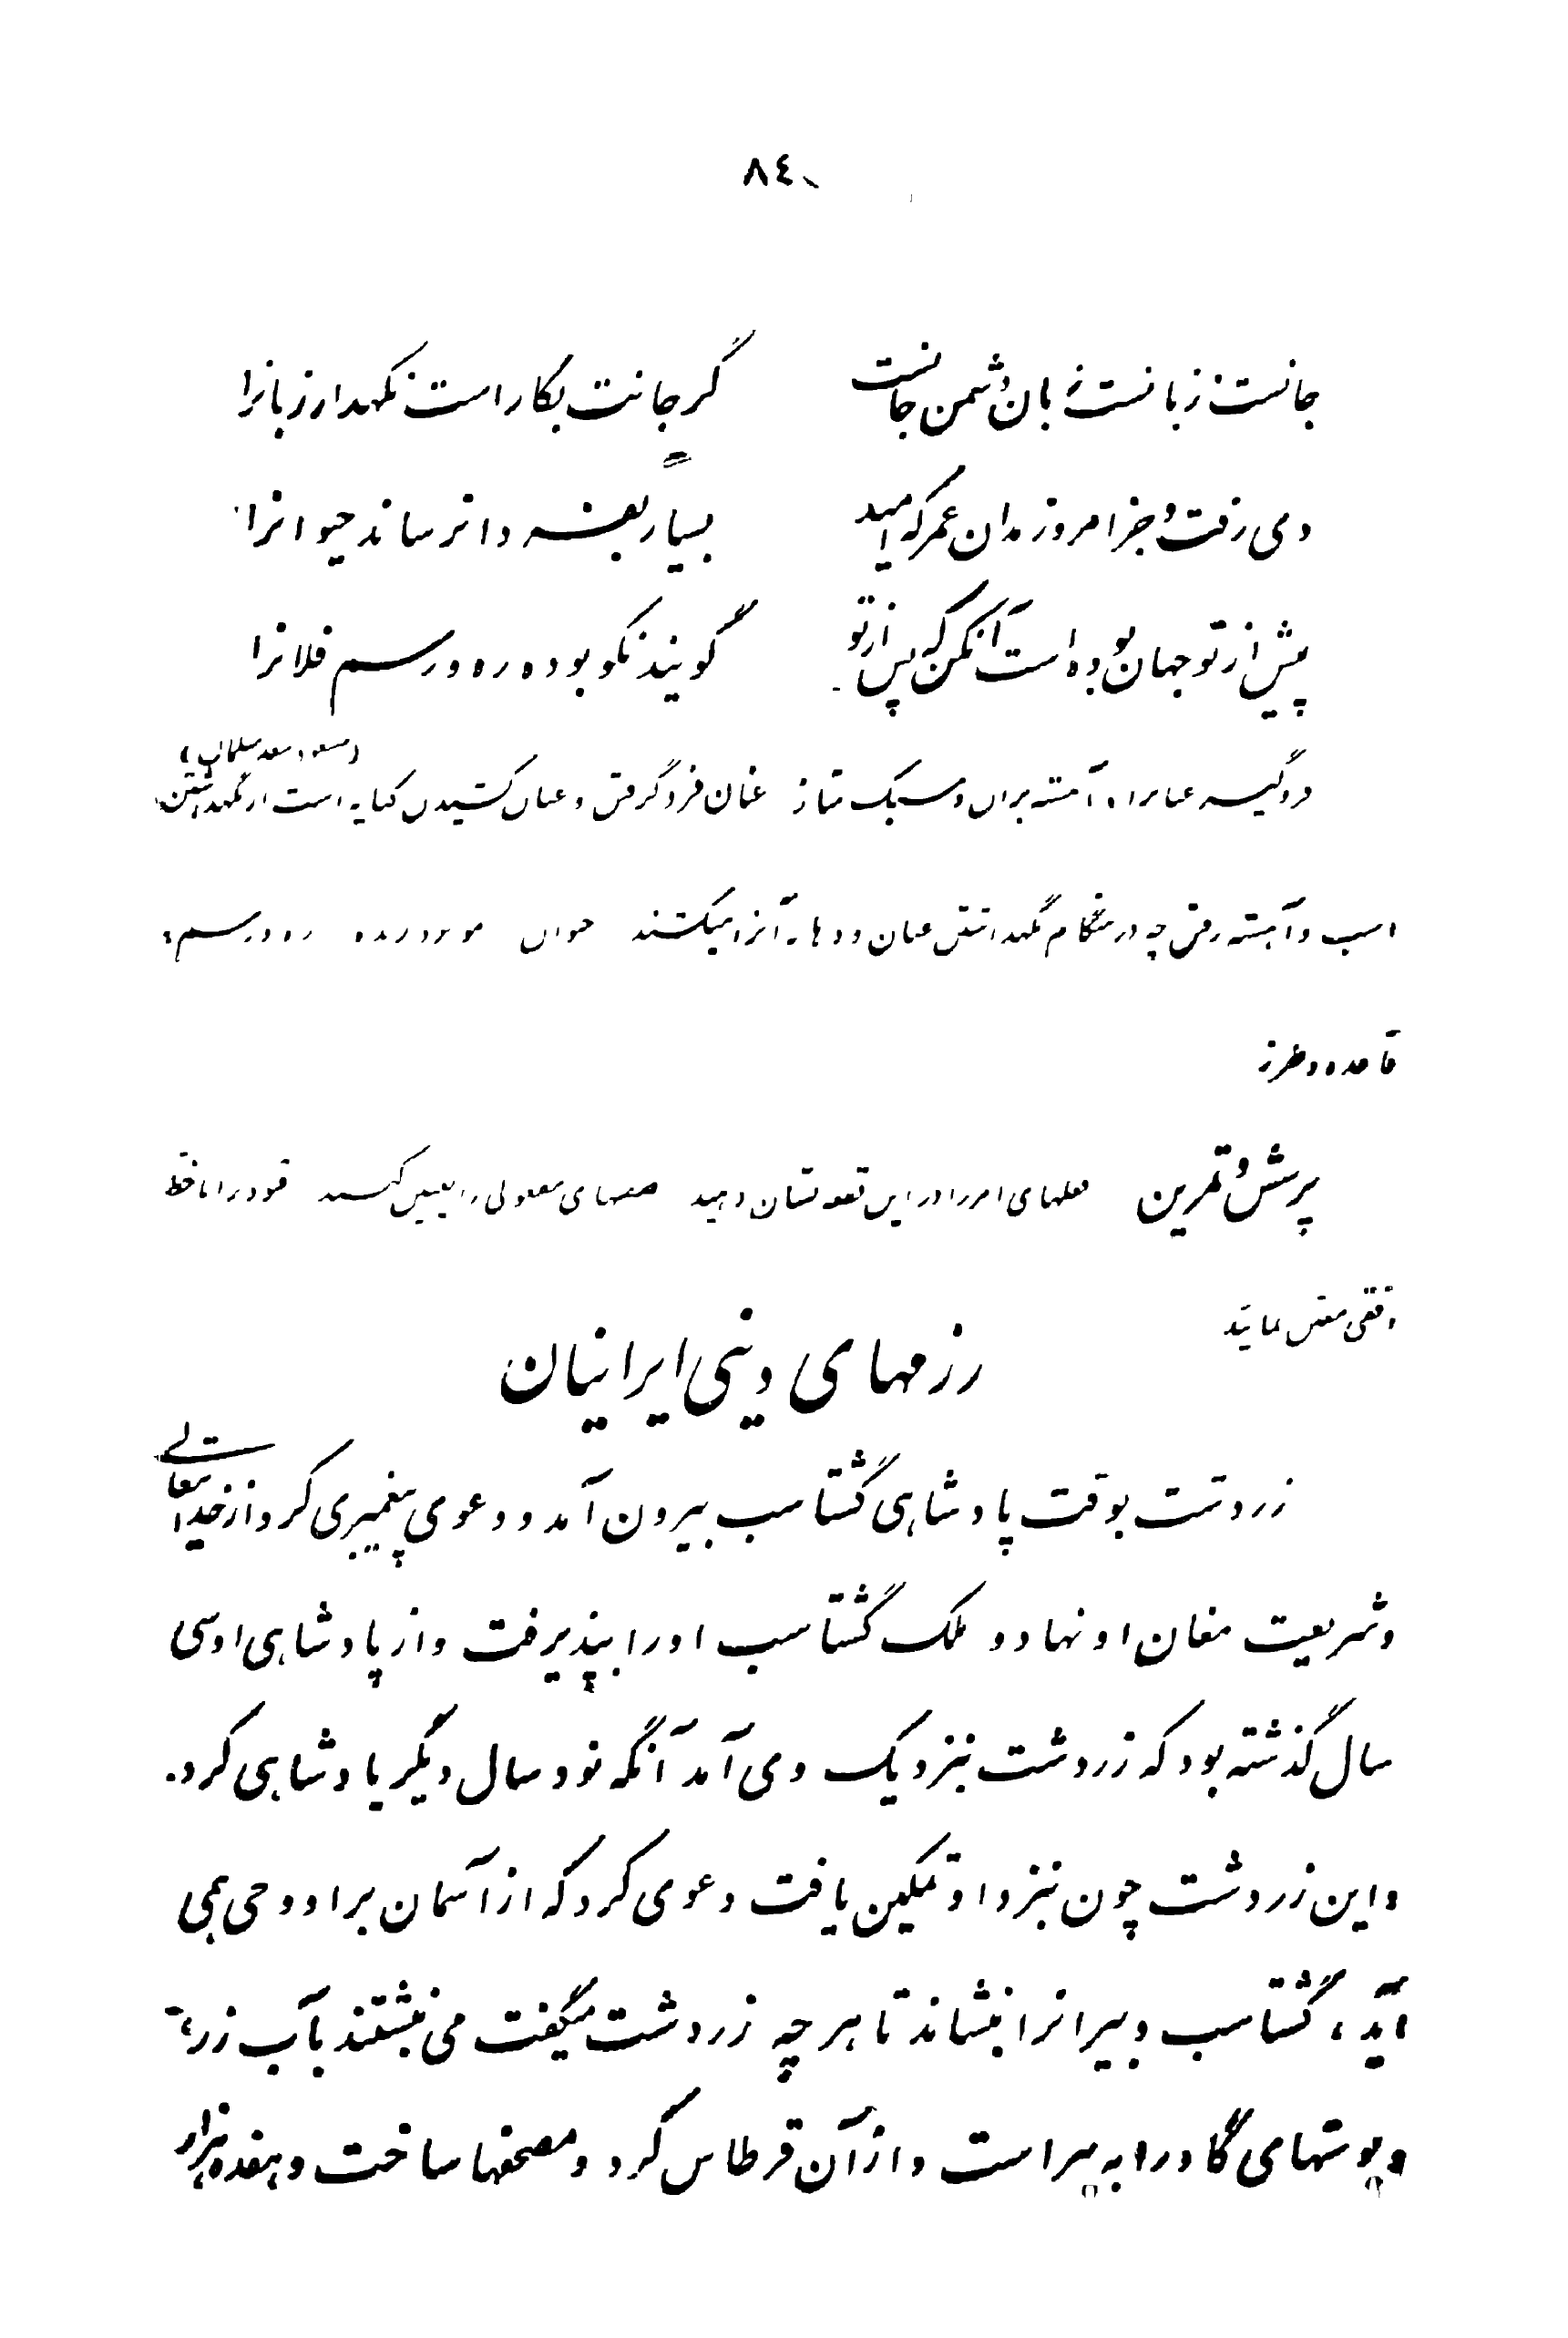 ٨٤
جانست زبانست زبان دشمن جانست گر جانت بکار است نگهدار زبانرا
دی رفت و جز امروز مدان عمر که امید بسیار بفسه دانرساند حیوانرا
پیش از تو جهان بوده است آن کن که پس از تو گویند نکو بود ره و رسم فلانرا
(مسعود سعد سلمان)
فروگیر عنانرا، آهسته بران و سبک متاز عنان فرو گرفتن و عنان کشیدن کنایه است از نگهداشتن
اسب و آهسته رفتن چه در هنگام نگهداشتن عنان و دهانه آنرا میکشند حیوان موجود زنده ره و رسم،
قاعده و طرز
پرسش و تمرین فعلهای امر را در این قطعه نشان دهید صفتهای مفعولی را تعیین کنید خود را با خط
افقی مشخص نمائید
رزمهای دینی ایرانیان
زردشت بوقت پادشاهی گشتاسب بیرون آمد و دعوی پیغمبری کرد از خدایتعالی
و شریعت مغان او نهاد و ملک گشتاسب او را بپذیرفت و از پادشاهی او سی
سال گذشته بود که زردشت بنزدیک وی آمد آنگه نود سال دیگر پادشاهی کرد.
و این زردشت چون بنزد او تمکین یافت دعوی کرد که از آسمان بر او وحی همی
آید، گشتاسب دبیرانرا بنشاند تا هر چه زردشت میگفت می نبشتند بآب زر،
و پوستهای گاو را به پیراست و از آن قرطاس کرد و مصحفها ساخت و هفده هزار